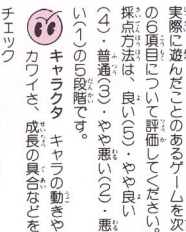 実際に遊んだことのあるゲームを次
の6項目について評価してください。
採点方法は、良い(5)・やや良い
(4)・普通(3)・やや悪い(2)・悪
い(1)の5段階です。
キャラクタ　キャラの動きや
カワイさ、成長の具合などを
チェック